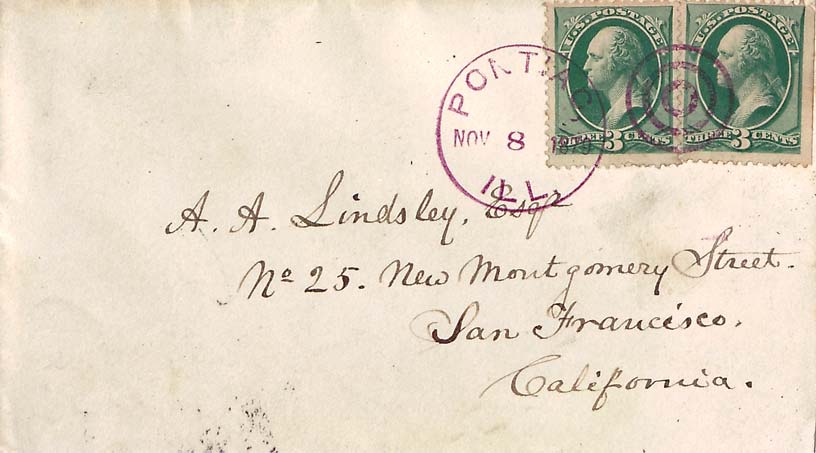 U.S. POSTAGE U.S. POSTAGE
THREE 3 CENTS THREE 3 CENTS
PONTIAC,
NOV 8
ILL.
A. A. Lindsley, Esqr
No 25. New Montgomery Street.
San Francisco.
California.